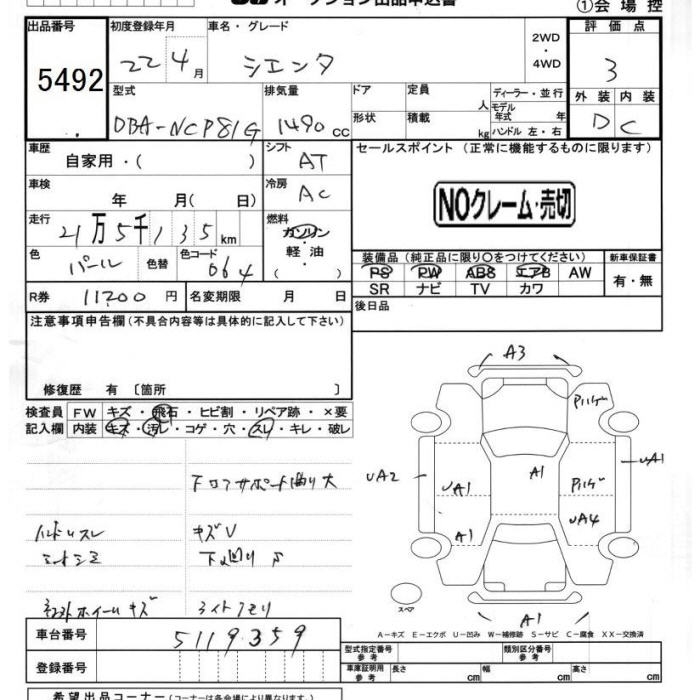 オークション出品申込書
①会場控
出品番号 初度登録年月 車名・グレード 評価点
5492 22 4月 シエンタ 2WD・4WD 3
型式 排気量 ドア 定員 人 ディーラー・並行 外装 内装
DBA-NCP81G 1490 cc 形状 積載 kg モデル年式 年 ハンドル 左・右 D C
車歴 自家用・( ) シフト AT セールスポイント (正常に機能するものに限ります)
車検 年 月 ( 日) 冷房 AC
NOクレーム・売切
走行 21万5千135km 燃料 ガソリン・軽油
色 パール 色替 色コード 064
装備品 (純正品に限り○をつけてください) 新車保証書
PS PW ABS エアB AW 有・無
SR ナビ TV カワ
R券 11200円 名変期限 月 日 後日品
注意事項申告欄(不具合内容等は具体的に記入して下さい)
修復歴 有 〔箇所 〕
検査員 FW キズ・飛石・ヒビ割・リペア跡・×要
記入欄 内装 キズ・汚レ・コゲ・穴・スレ・キレ・破レ
下コアサポート曲り大
ハンドルスレ キズV
シートシミ 下廻りS
ホイールキズ ライトクモリ
A3
UA2 UA1 A1 UA1
A1 UA4
スペア
A1
A-キズ E-エクボ U-凹み W-補修跡 S-サビ C-腐食 XX-交換済
車台番号 5119359
登録番号
型式指定番号 参考 類別区分番号 参考
車庫証明用 参考 長さ cm 幅 cm 高さ cm
希望出品コーナー (コーナーは各会場により異なります。)